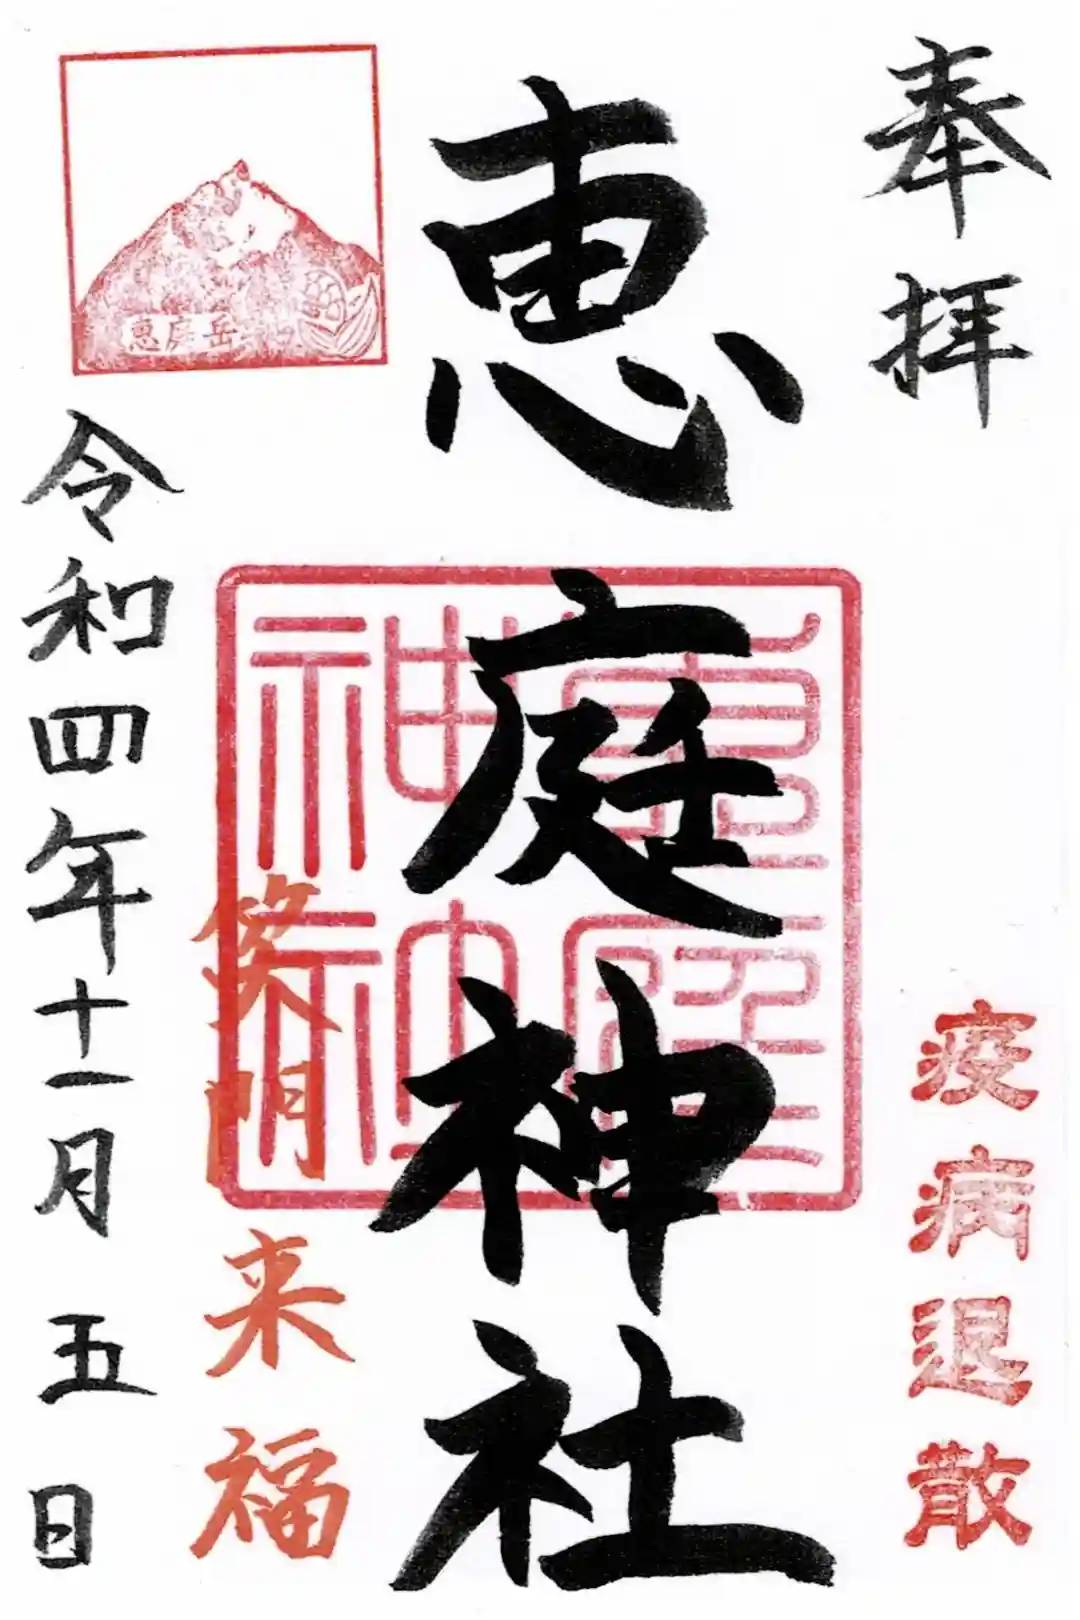 奉拝
疫病退散
恵庭神社
恵庭神社
笑門来福
恵庭岳
令和四年十一月五日